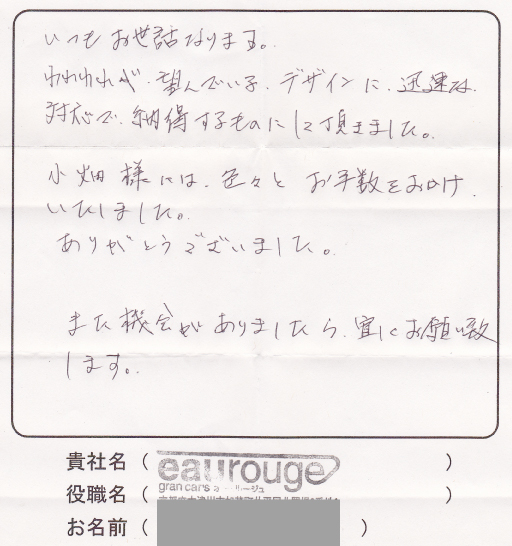 いつもお世話なります。
われわれが、望んでいる、デザインに、迅速な
対応で、納得するものにして頂きました。
小畑様には、色々とお手数をおかけ
いたしました。
ありがとうございました。
また機会がありましたら、宜しくお願い致
します。
貴社名（eaurouge）
gran cars
役職名（ ）
お名前（ ）